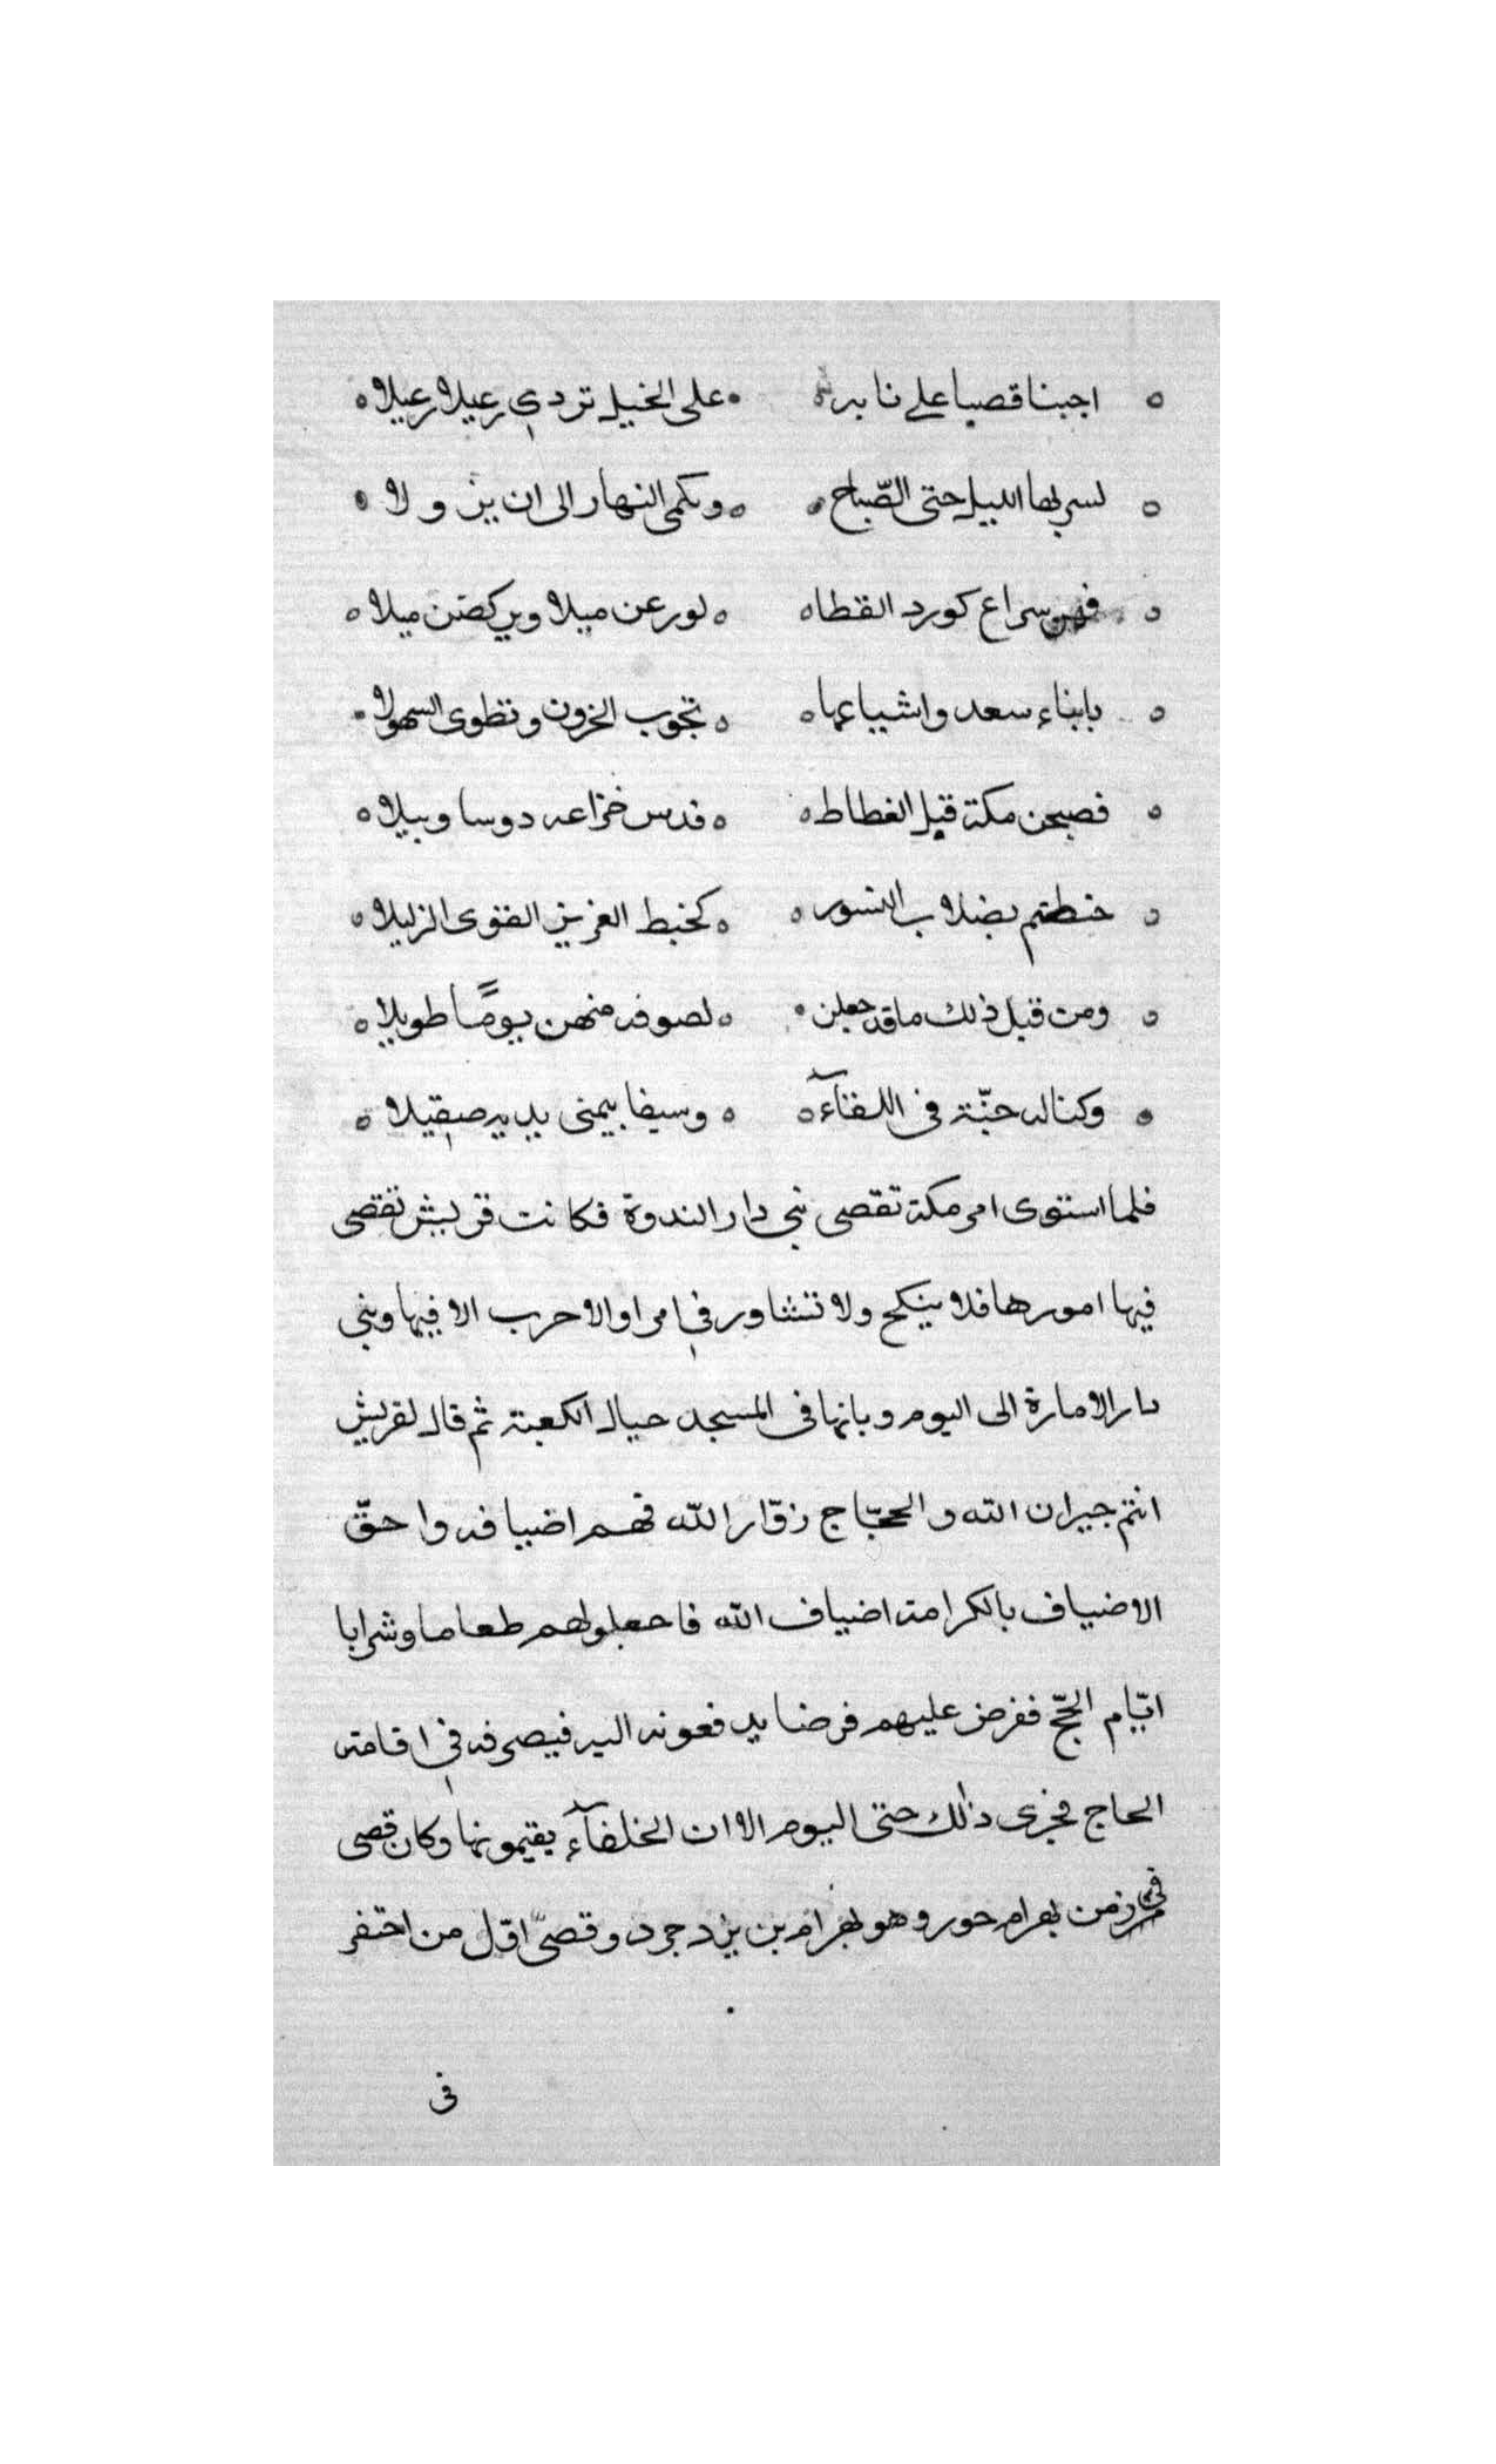 اجبنا قصيا على نا به على الخيل تردي رعيلا رعيلا
لسير بها الليل حتى الصّباح ونكمى النهار الى ان يزولا
فهن سراع كورد القطا لورعن ميلا ويركضن ميلا
بابناء سعد واشياعها تجوب الخزون وتطوى السهولا
فصبحن مكة قبل الغطاط فدس خزاعه دوسا وبيلا
خطتم بضلاب النسور كخبط العزيز القوى الزليلا
ومن قبل ذلك ما قد جعلن لصوفه منهن يومًا طويلا
وكنا له جنّة في اللقآء وسيفا بيمنى يديه صقيلا
فلما استوى امر مكة تقصى بنى دار الندوة فكانت قريش تقصى
فيها امورها فلا ينكح ولا تتشاور في امر اوالا حرب الا فيها وبنى
دار الامارة الى اليوم وبابها في المسجد حيال الكعبة ثم قال لقريش
انتم جيران الله والحجّاج زوّار الله فهم اضيافه واحقّ
الاضياف بالكرامة اضياف الله فاجعلوا لهم طعاما وشرابا
ايّام الحجّ ففرض عليهم فرضا يدفعونه اليه فيصرفه في اقامة
الحاج فجرى ذلك حتى اليوم الا ان الخلفآء يقيمونها وكان قصى
في زمن بهرام جور وهو بهرام بن يزدجرد وقصىّ اوّل من احتفر
فى